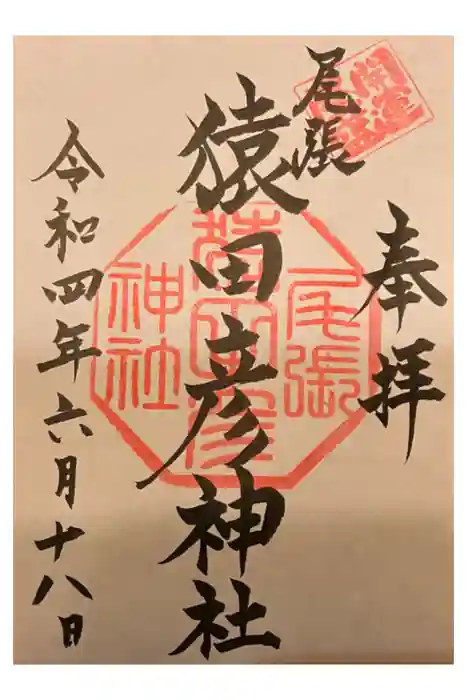 奉拝
尾張
猿田彦神社
令和四年六月十八日
開運
尾張
猿田彦
神社